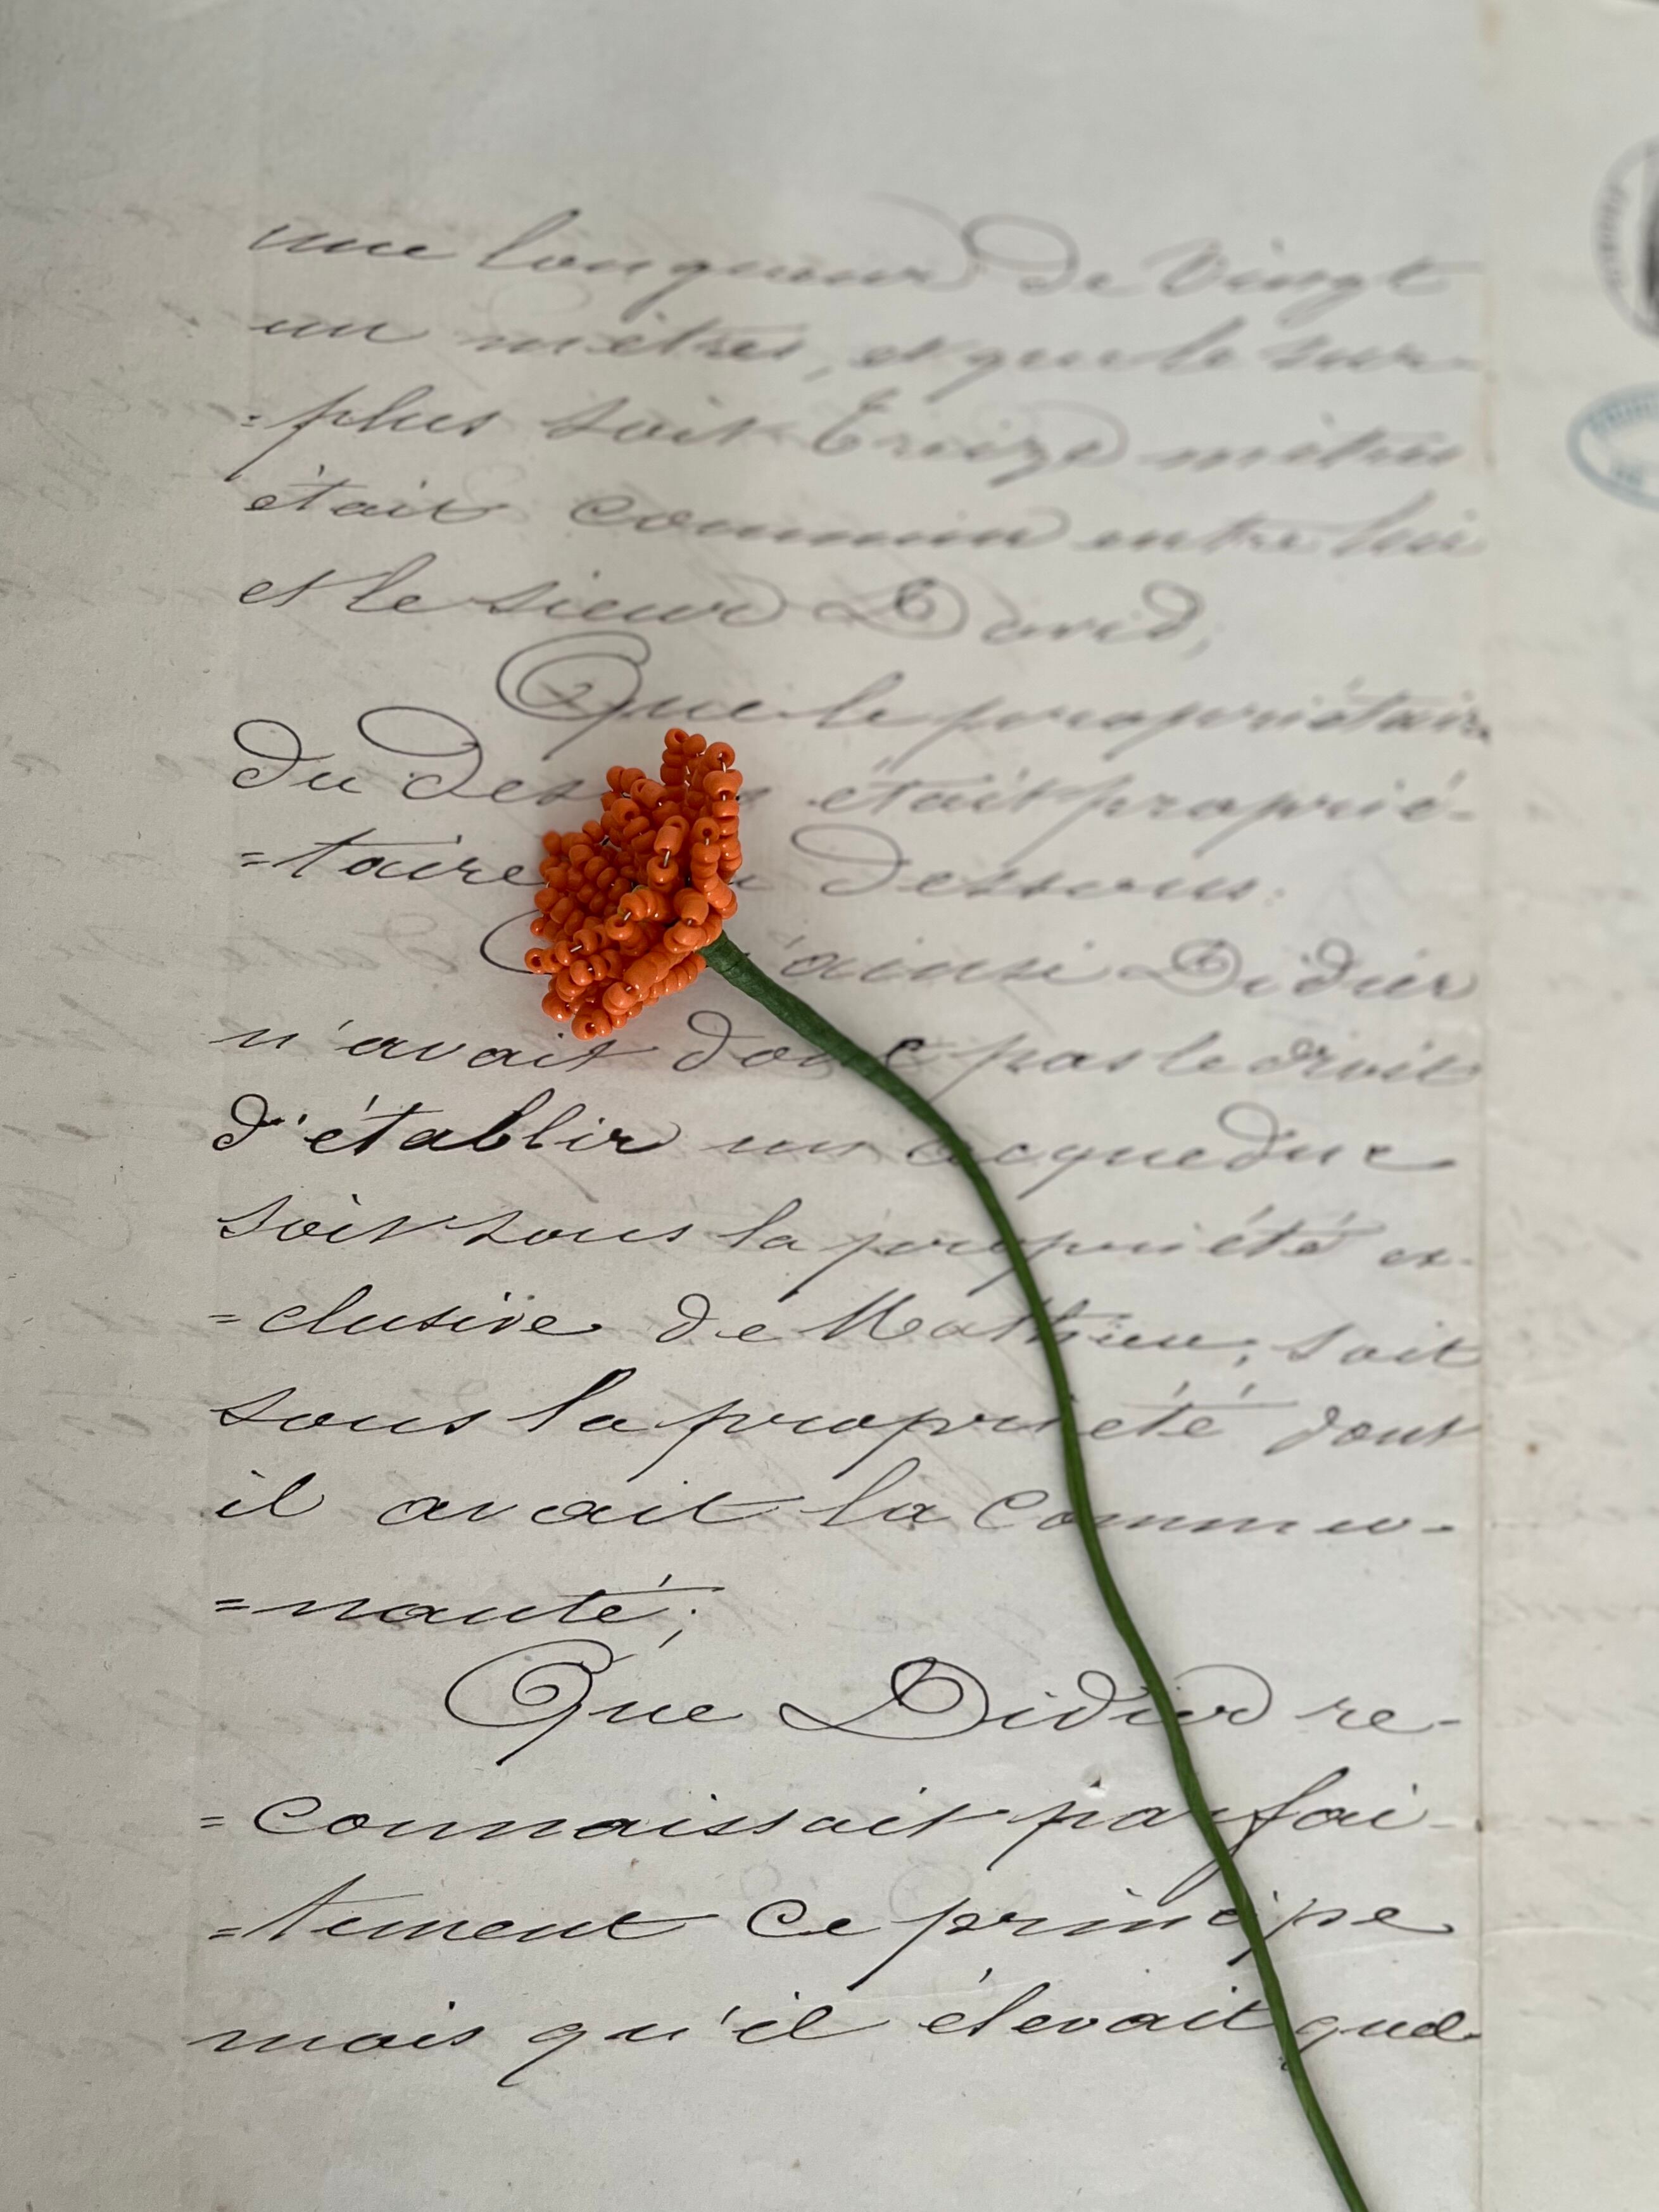 une longueur de Vingt
un mètres, et que le sur-
=plus soit Treize mètres
était commun entre lui
et le sieur David;
Que le propriétaire
du des était proprié-
=taire dessous.
ainsi Didier
n'avait donc pas le droit
d'établir un acqueduc
soit sous la propriété ex-
=clusive de Mathieu, soit
sous la propriété dont
il avait la commu-
=nauté;
Que Didier re-
=connaissait parfai-
=tement ce principe
mais qu'il élevait quel-